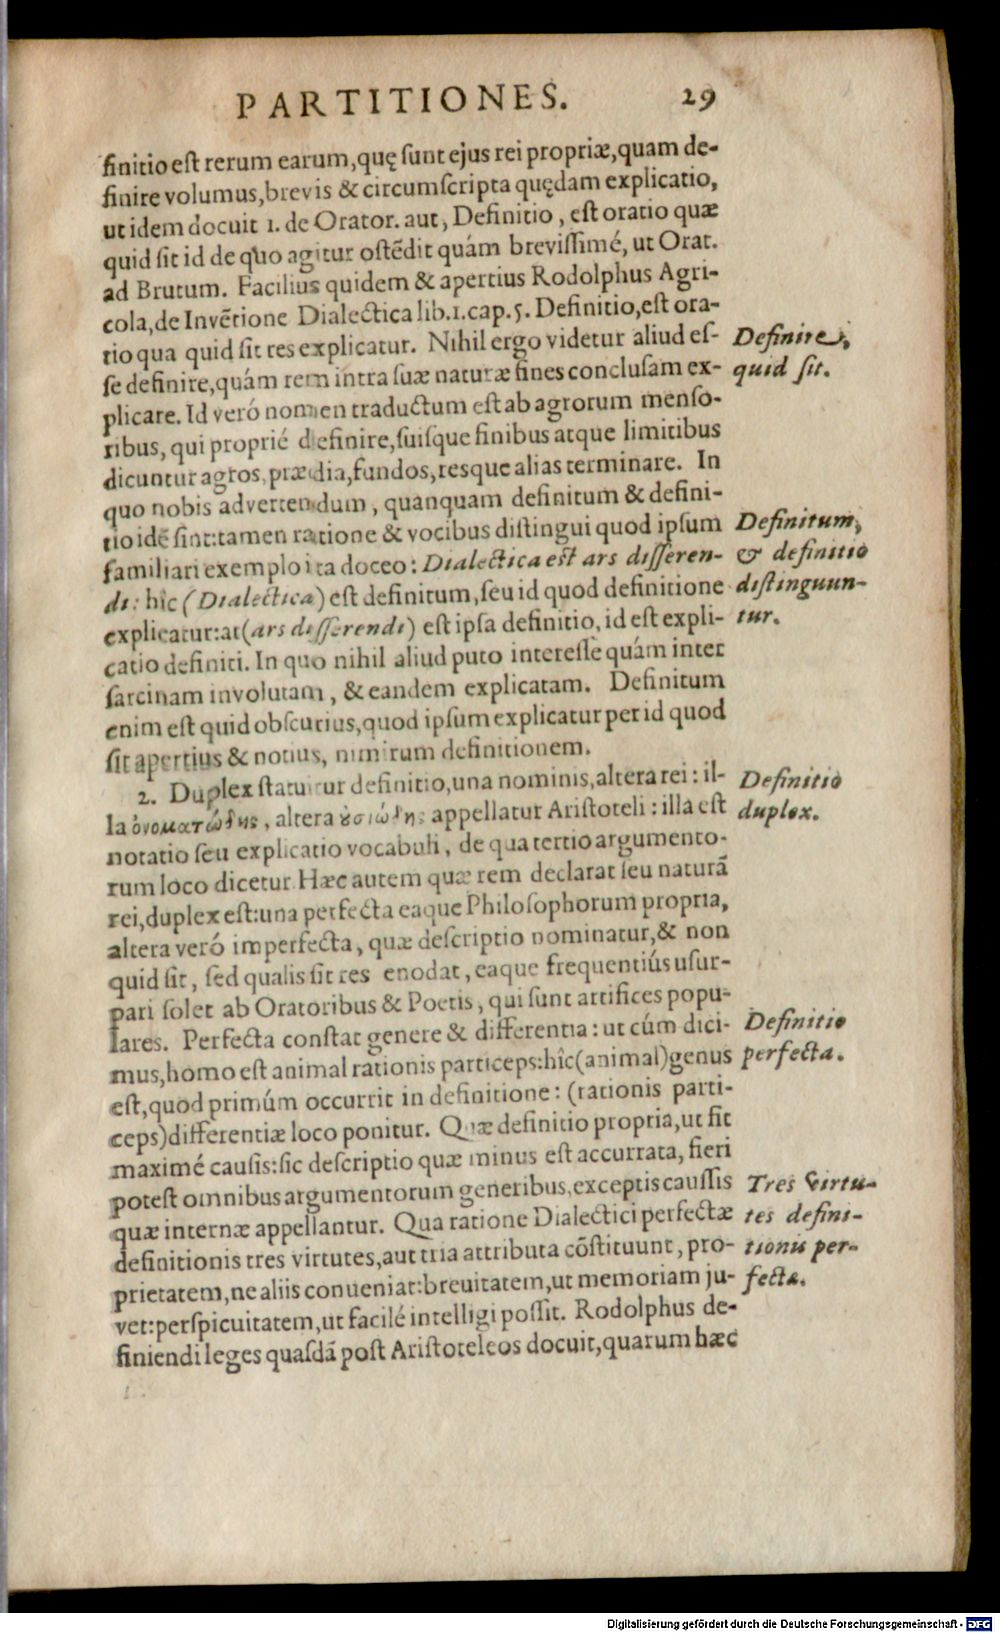 PARTITIONES. 29
finitio est rerum earum, quę sunt ejus rei propriæ, quam de-
finire volumus, brevis & circumscripta quędam explicatio,
ut idem docuit 1. de Orator. aut, Definitio, est oratio quæ
quid sit id de quo agitur ostẽdit quám brevissimé, ut Orat.
ad Brutum. Facilius quidem & apertius Rodolphus Agri-
cola, de Invẽtione Dialectica lib. 1. cap. 5. Definitio, est ora-
tio qua quid sit res explicatur. Nihil ergo videtur aliud es-
se definire, quám rem intra suæ naturæ fines conclusam ex-
plicare. Id veró nomen traductum est ab agrorum menso-
ribus, qui proprié definire, suisque finibus atque limitibus
dicuntur agros, prædia, fundos, resque alias terminare. In
quo nobis advertendum, quanquam definitum & defini-
tio idẽ sint: tamen ratione & vocibus distingui quod ipsum
familiari exemplo ita doceo: Dialectica est ars disseren-
di: hîc (Dialectica) est definitum, seu id quod definitione
explicatur: at (ars disserendi) est ipsa definitio, id est expli-
catio definiti. In quo nihil aliud puto interesse quám inter
sarcinam involutam, & eandem explicatam. Definitum
enim est quid obscurius, quod ipsum explicatur per id quod
sit apertius & notius, nimirum definitionem.
2. Duplex statuitur definitio, una nominis, altera rei: il-
la ὀνοματώδης, altera οὐσιώδης appellatur Aristoteli: illa est
notatio seu explicatio vocabuli, de qua tertio argumento-
rum loco dicetur. Hæc autem quæ rem declarat seu naturã
rei, duplex est: una perfecta eaque Philosophorum propria,
altera veró imperfecta, quæ descriptio nominatur, & non
quid sit, sed qualis sit res enodat, eaque frequentiús usur-
pari solet ab Oratoribus & Poetis, qui sunt artifices popu-
lares. Perfecta constat genere & differentia: ut cúm dici-
mus, homo est animal rationis particeps: hîc (animal) genus
est, quod primúm occurrit in definitione: (rationis parti-
ceps) differentiæ loco ponitur. Quæ definitio propria, ut fit
maximé causis: sic descriptio quæ minus est accurrata, fieri
potest omnibus argumentorum generibus, exceptis caussis
quæ internæ appellantur. Qua ratione Dialectici perfectæ
definitionis tres virtutes, aut tria attributa cõstituunt, pro-
prietatem, ne aliis conueniat: breuitatem, ut memoriam ju-
vet: perspicuitatem, ut facilé intelligi possit. Rodolphus de-
finiendi leges quasdã post Aristoteleos docuit, quarum hæc
Definire,
quid sit.
Definitum,
& definitio
distinguun-
tur.
Definitio
duplex.
Definitio
perfecta.
Tres virtu-
tes defini-
tionis per-
fectæ.
Digitalisierung gefördert durch die Deutsche Forschungsgemeinschaft - DFG